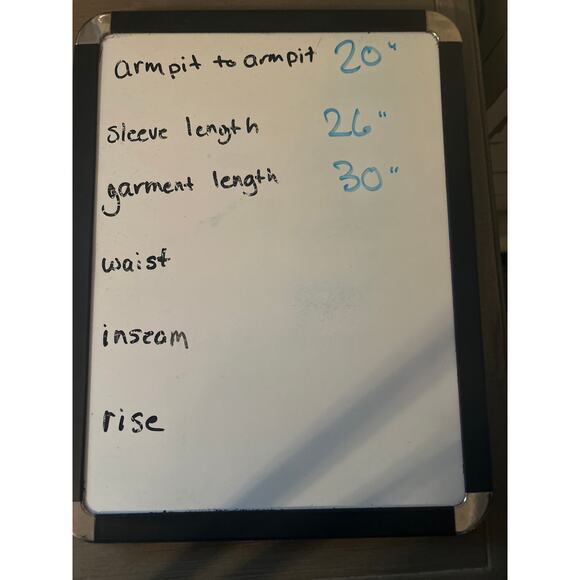 armpit to armpit 20"
sleeve length 26"
garment length 30"
waist
inseam
rise